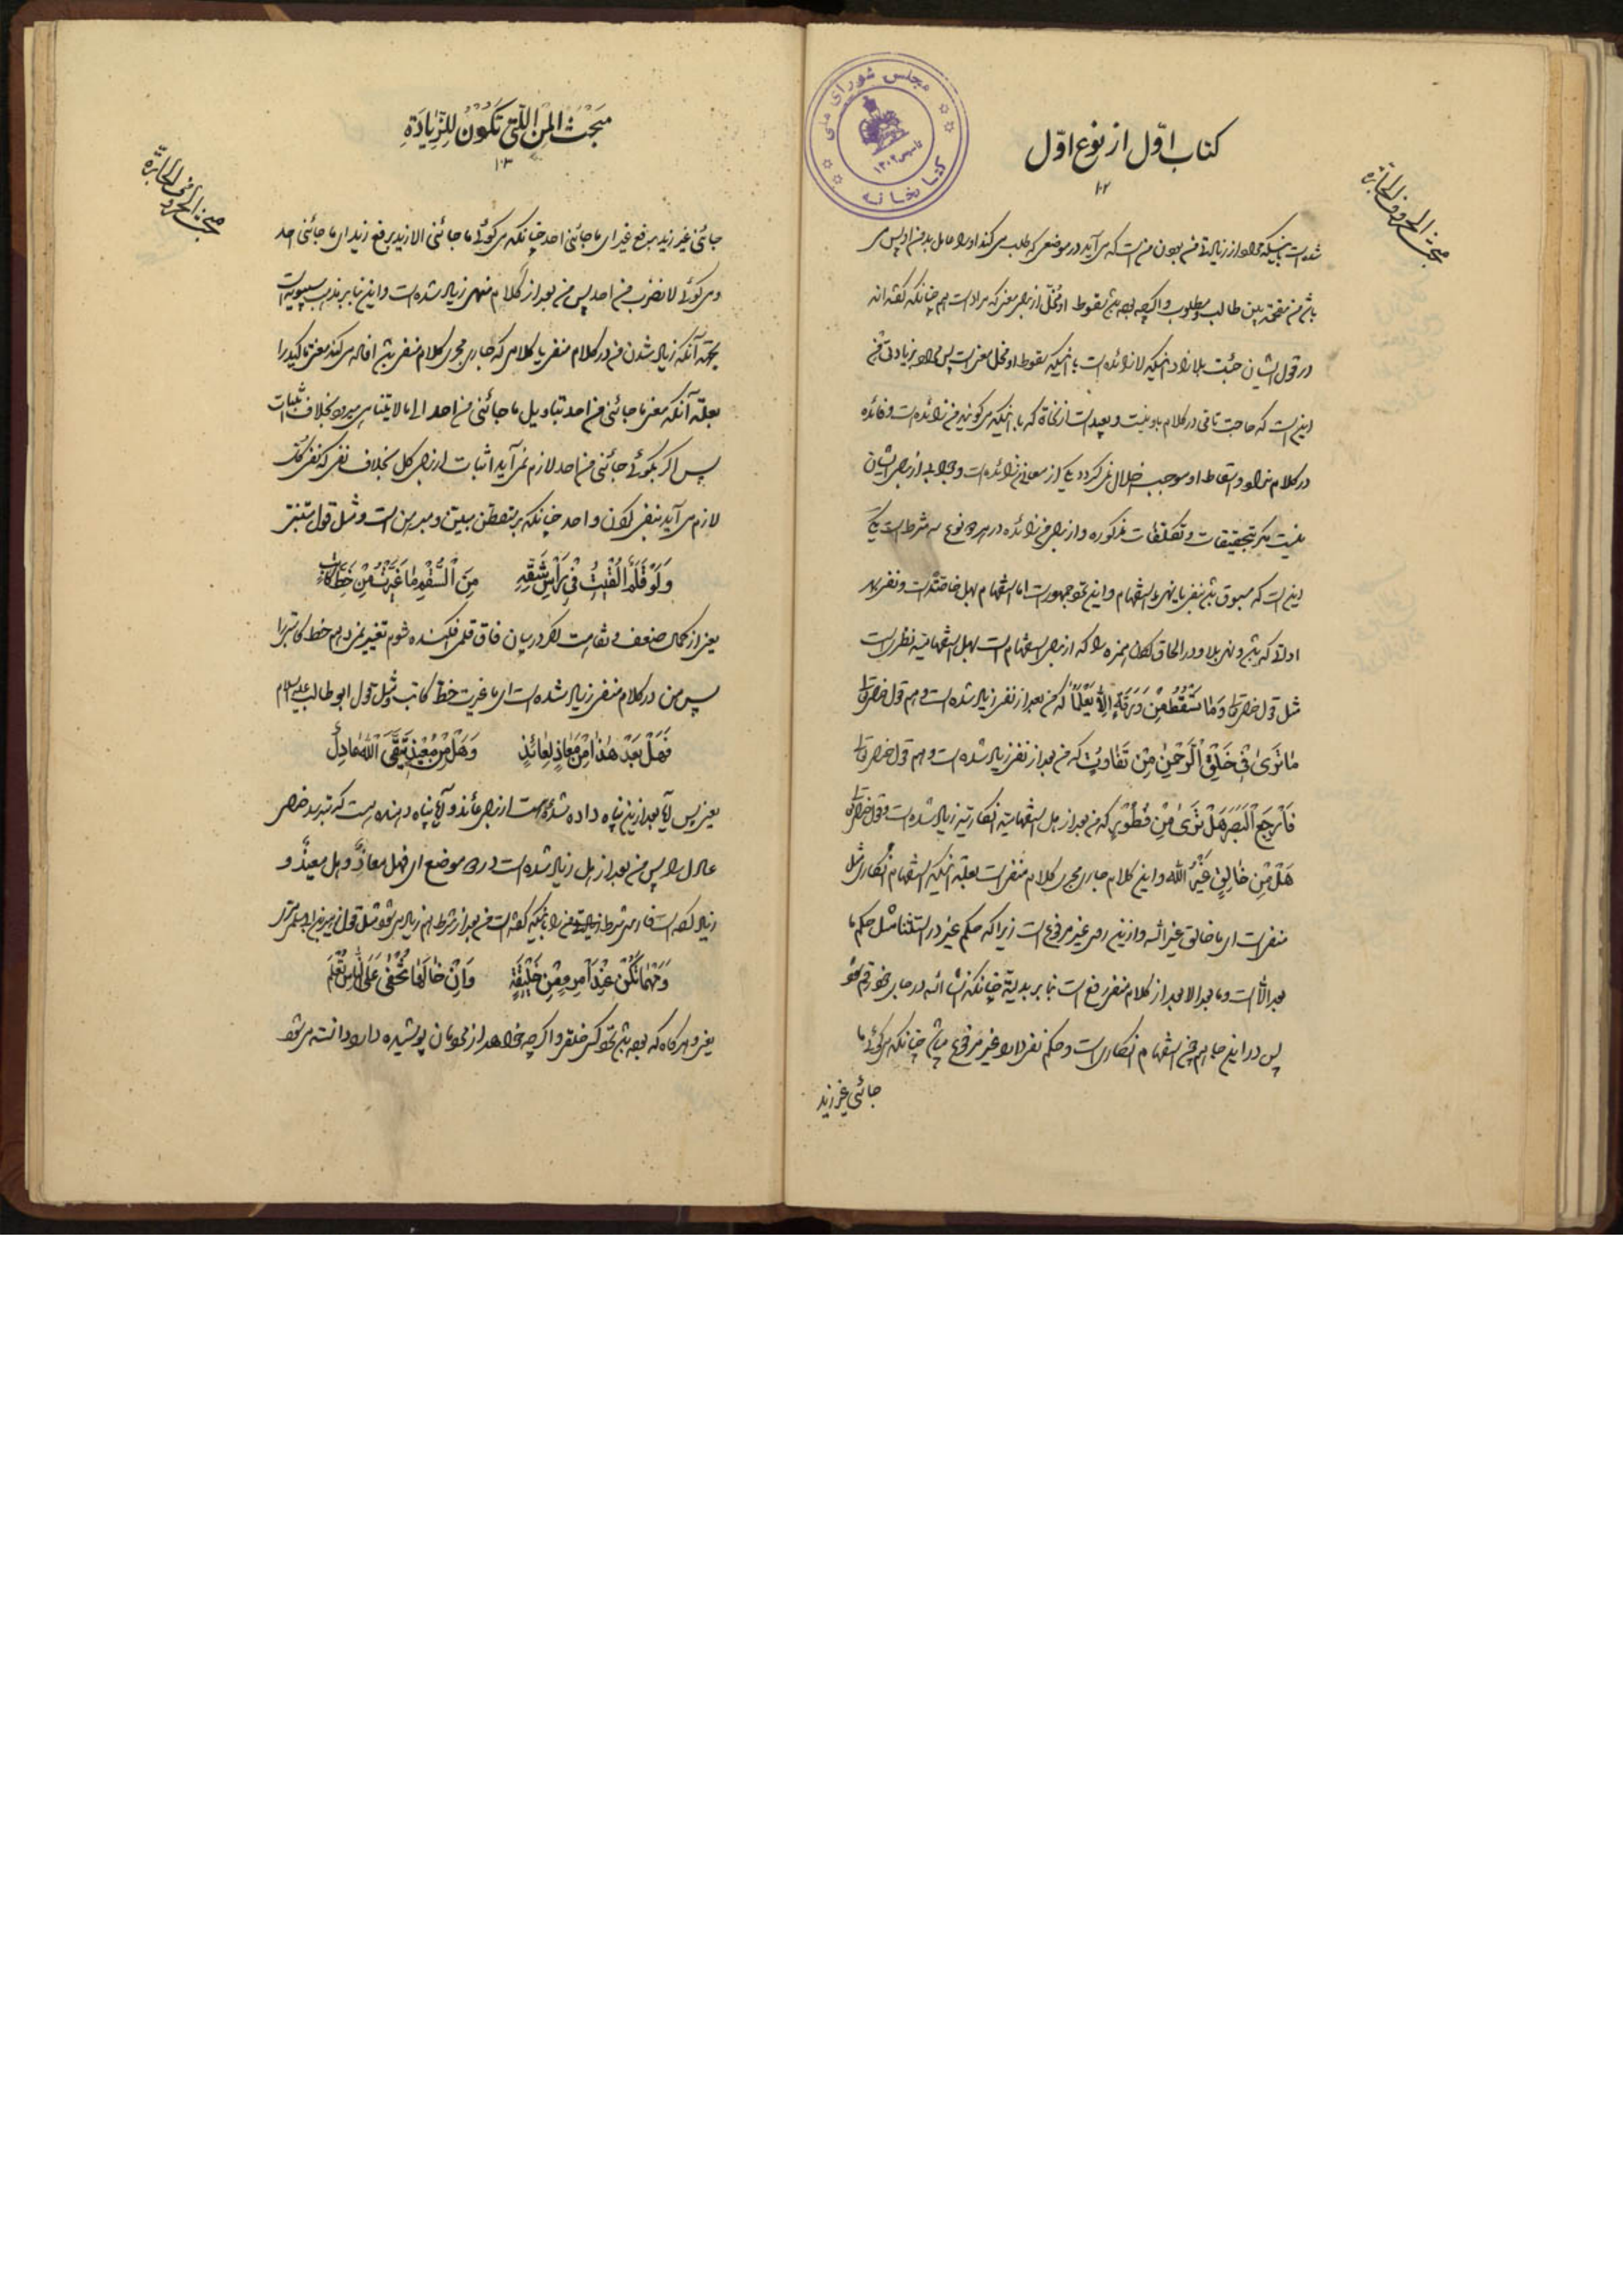 کتاب اوّل از نوع اوّل
۱۰۲
مبحث الحروف الجارّة
مجلس شورای ملی
تاسیس ۱۳۰۲
کتابخانه
باشد من مقحمة بین طالب و مطلوب و اگرچه بوده باشد سقوط او مخلّ از برای معنی که مراد است هم چنانکه گفته‌اند
در قول ایشان جئت بلا زاد باینکه لا زائده است با اینکه سقوط او مخل معنی است پس مراد بزیادتی من
این است که حاجت تامی در کلام باو نیست و بعید است از نحاة که با اینکه می گویند من زائده است و فائده
در کلام ندارد و اسقاط او موجب اخلال نمی گردد یکی از معانی زائده است و جواب از برای ایشان
نیست مگر بتحقیقات و تکلفات مذکوره و از برای من زائده در هر دو نوع سه شرط است یکی
این است که مسبوق باشد بنفی یا نهی یا استفهام و این نحو جمهور است اما استفهام بهل خاصّة است و نفی بهر
اداة که باشد و نهی بلا و در الحاق همزه را که از برای استفهام است بهل استفهامیه نظر است
مثل قول خدایتعالی وَمٰا تَسْقُطُ مِنْ وَرَقَةٍ اِلّٰا یَعْلَمُهٰا که من بعد از نفی زیاد شده است و هم قول خدایتعالی
مٰا تَرىٰ فِیْ خَلْقِ الرَّحْمٰنِ مِنْ تَفٰاوُتٍ که من بعد از نفی زیاد شده است و هم قول خدایتعالی
فَارْجِعِ الْبَصَرَ هَلْ تَرىٰ مِنْ فُطُوْرٍ که من بعد از هل استفهامیه انکاریه زیاد شده است و قول خدایتعالی
هَلْ مِنْ خٰالِقٍ غَیْرُ اللّٰه و این کلام جاری مجرای کلام منفی است بعلة اینکه استفهام انکاری مثل
منفی است ای ما خالق غیر الله و از این روی غیر مرفوع است زیرا که حکم غیر در استثنا مثل حکم ما
بعد الّا است و ما بعد الا بعد از کلام منفی رفع است بنا بر بدلیة چنانکه
پس در این جا هم چون استفهام انکاری است و حکم نفی دارد غیر مرفوع میباشد چنانکه می گوئی ما
جائنی غیر زید
مَبْحَثُ الْمِنِ الَّتِی تَکُوْنُ لِلزِّیٰادَةِ
۱۰۳
مبحث الحروف الجارّة
جائنی غیر زید برفع غیر ای ما جائنی احد چنانکه می گوئی ما جائنی الا زید برفع زید ای ما جائنی احد
و می گوئی لا تضرب من احد پس من بعد از کلام منهی زیاد شده است و این بنا بر مذهب سیبویه است
بجهة آنکه زیاد شدن من در کلام منفی یا کلامی که جاری مجرای کلام منفی باشد افاده می کند معنی تاکید را
بعلّة آنکه معنی ما جائنی من احد بتاویل ما جائنی من احد الی ما لا یتناهی میرود بخلاف اثبات
پس اگر بگوئی جائنی من احد لازم نمی آید اثبات از برای کل بخلاف نفی که نفی کل
لازم می آید بنفی و احد چنانکه بر متفطن مبیّن و مبرهن است و مثل قول متنبی
وَلَوْ قَلَمٌ اُلْقِیْتُ فِیْ رَأسِ شَقِّهِ مِنَ السُّقْمِ مٰا غَیَّرْتُ مِنْ خَطِّ کٰاتِبِ
یعنی از کمال ضعف و نقاهت اگر در میان فاق قلمی افکنده شوم تغییر نمیدهم خط کاتب را
پس من در کلام منفی زیاد شده است ای ما غیرت خطّ کاتب و مثل قول ابو طالب علیه السلام
فَهَلْ بَعْدَ هٰذٰا مِنْ مَعٰاذٍ لِعٰائِذٍ وَهَلْ مِنْ مُعِیْذٍ یَتَّقِی اللّٰهَ عٰادِلُ
یعنی پس آیا بعد از این پناه داده شدهٔ هست از برای عائذ و آیا پناه دهنده هست که بترسد خدای
عادل را پس من بعد از هل زیاد شده است در دو موضع ای فهل معاذ و هل معیذ و
زیاد کرده است فارسی شرط را باینکه گفته است من بعد از شرط هم زیاد می شود مثل قول زهیر بن ابو سلمی
وَمَهْمٰا تَکُنْ عِنْدَ امْرِءٍ مِنْ خَلِیْقَةٍ وَاِنْ خٰالَهٰا تَخْفٰى عَلَى النّٰاسِ تُعْلَمُ
یعنی و هرگاه که بوده باشد نزد کسی خلقی و اگرچه خواهد از مردمان پوشیده دارد دانسته می شود